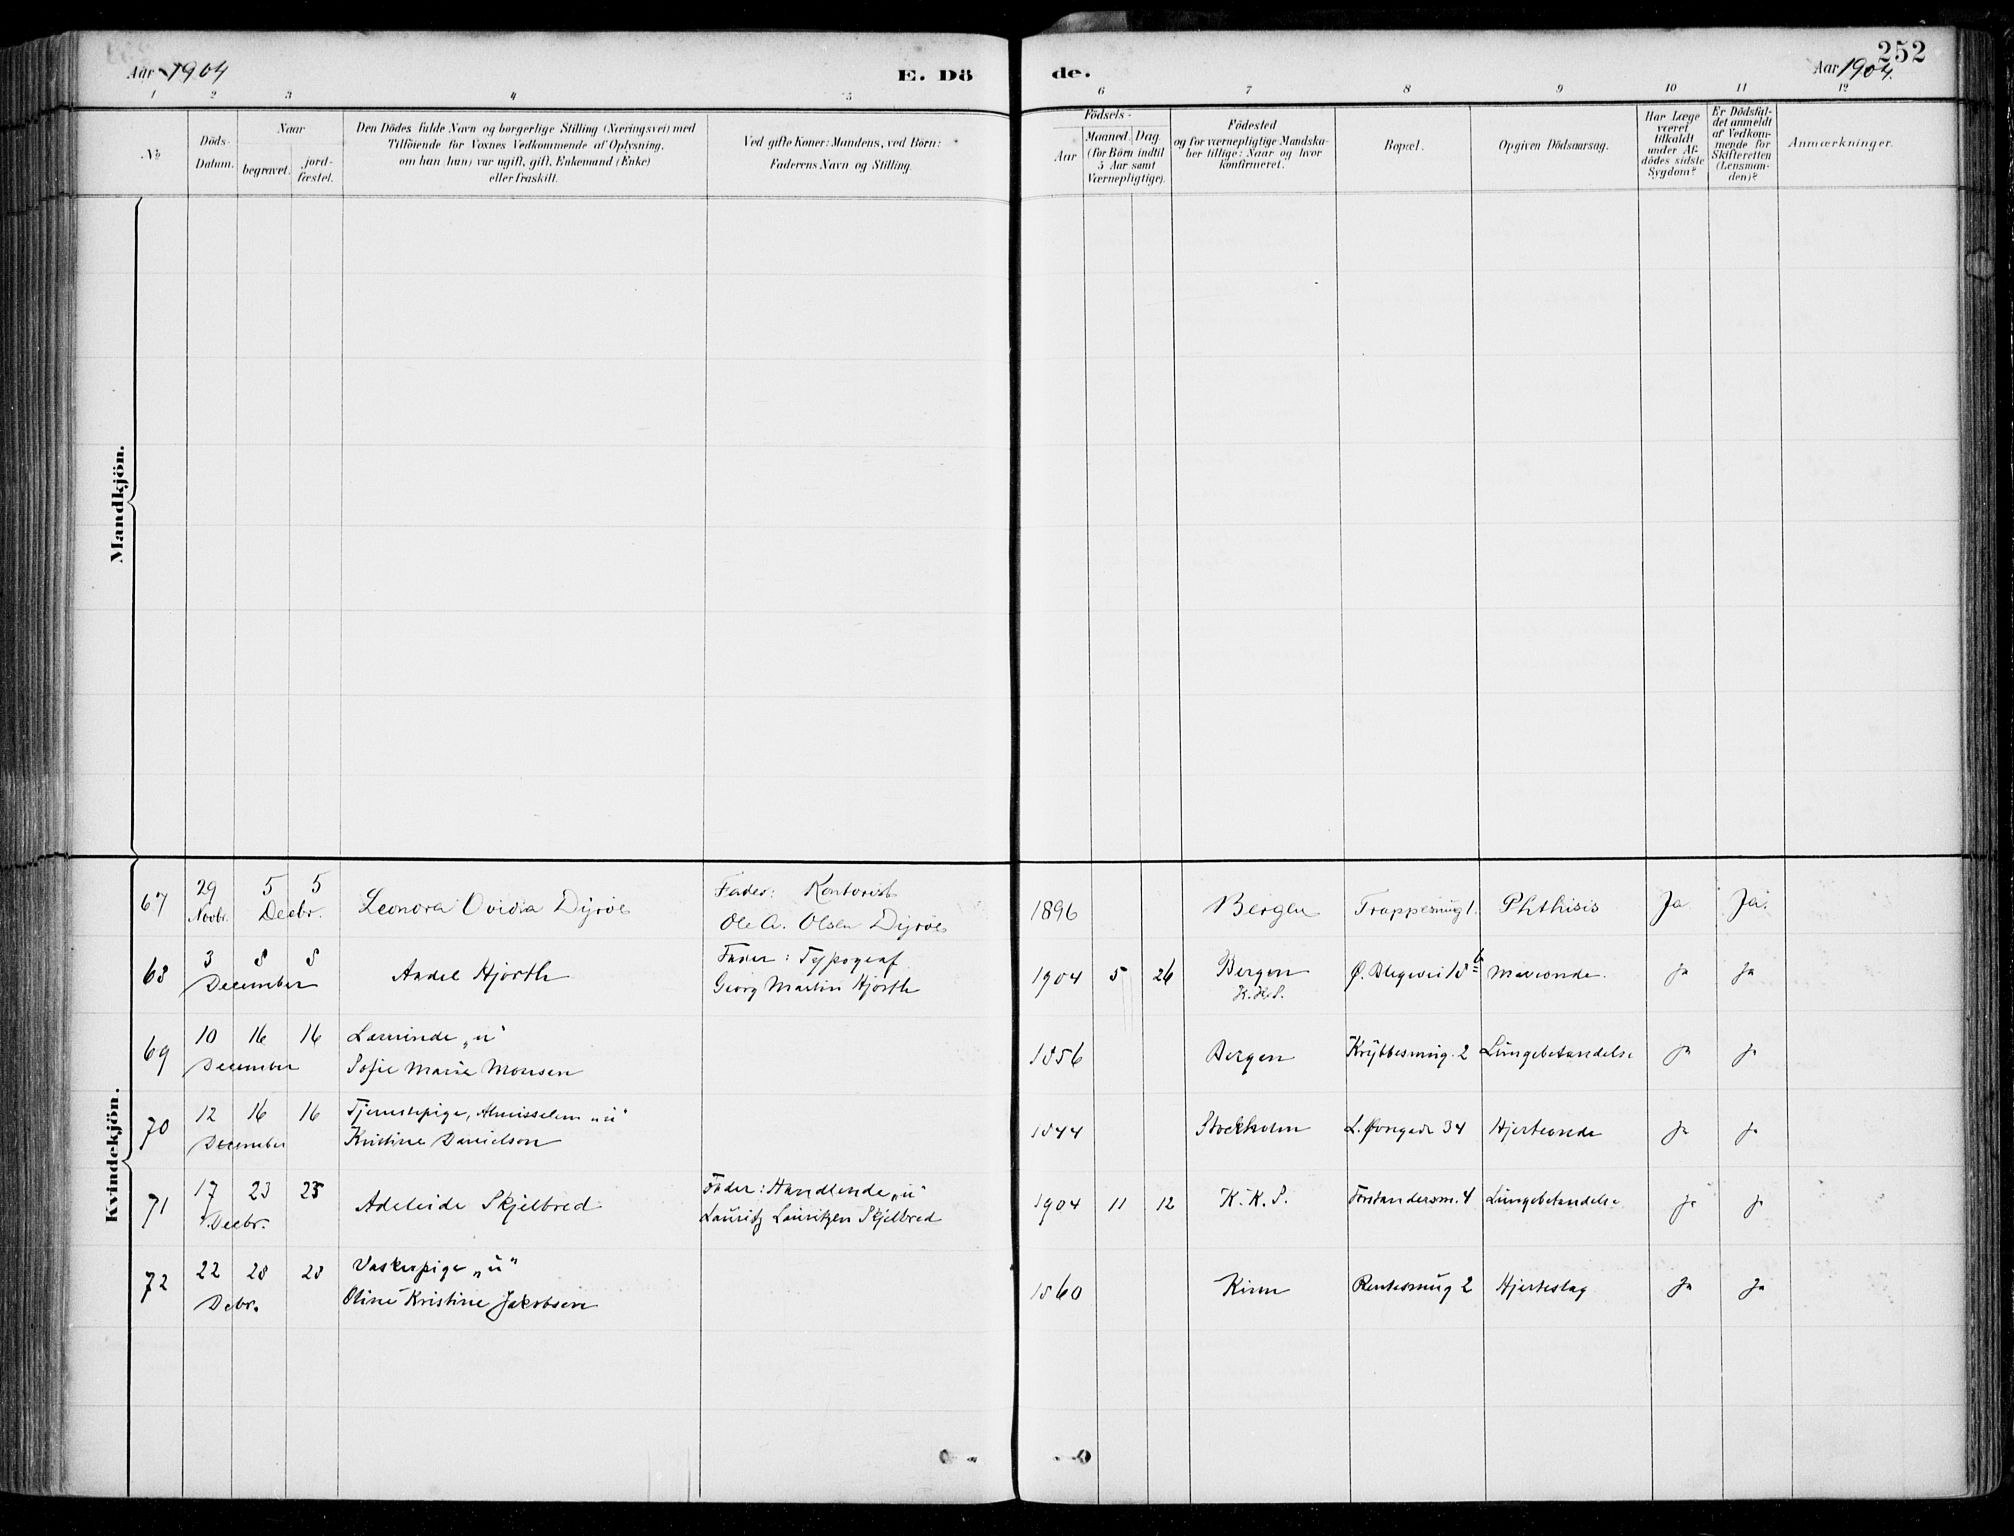 252
Aar 1904
E. Döde.
Aar 1904
1 2 3 4 5 6 7 8 9 10 11 12
No
Döds-Datum.
Naar
begravet.
jord-fæstet.
Den Dödes fulde Navn og borgerlige Stilling (Næringsvei) med
Tilföiende for Voxnes Vedkommende af Oplysning,
om han (hun) var ugift, gift, Enkemand (Enke)
eller fraskilt.
Ved gifte Koner: Mandens, ved Börn:
Faderens Navn og Stilling.
Födsels-
Aar
Maaned. Dag
(for Börn indtil
5 Aar samt
Værnepligtige).
Födested
og for værnepligtige Mandska-
ber tillige: Naar og hvor
konfirmeret.
Bopæl.
Opgiven Dödsaarsag.
Har Læge
været
tilkaldt
under Af-
dödes sidste
Sygdom?
Er Dödsfal-
det anmeldt
af Vedkom-
mende for
Skifteretten
(Lensman-
den)?
Anmærkninger.
Mandkjön.
Kvindekjön.
67 29 Novbr. 5 5 Decbr. Leonora Ovidia Dyröe Fader: Kontorist
Ole A. Olsen Dyröe 1896 Bergen Trappesmug 1. Phthisis Ja Ja.
68 3 8 8 December Andel Hjorth Fader: Typograf
Georg Martin Hjorth 1904 5 26 Bergen K. K. S. Ø. Blegevei 18 b Maveonde. Ja Ja
69 10 16 16 December Læminde „u“
Sofie Marie Monsen 1856 Bergen Krybbesmug. 2 Lungebetændelse Ja Ja
70 12 16 16 December Tjenestepige, Almisselem „u“
Kristine Danielson 1844 Stockholm L. Øvregade 34 Hjerteonde Ja Ja
71 17 23 23 Decbr. Adeleide Skjelbred Fader: Handlende „u“
Lauritz Lauritzen Skjelbred 1904 11 12 K. K. S. Forstandersm. 4 Lungebetændelse Ja Ja
72 22 28 28 Debr. Vaskerpige „u“
Oline Kristine Jakobsen 1860 Kinn Rentesmug 2 Hjerteslag Ja Ja